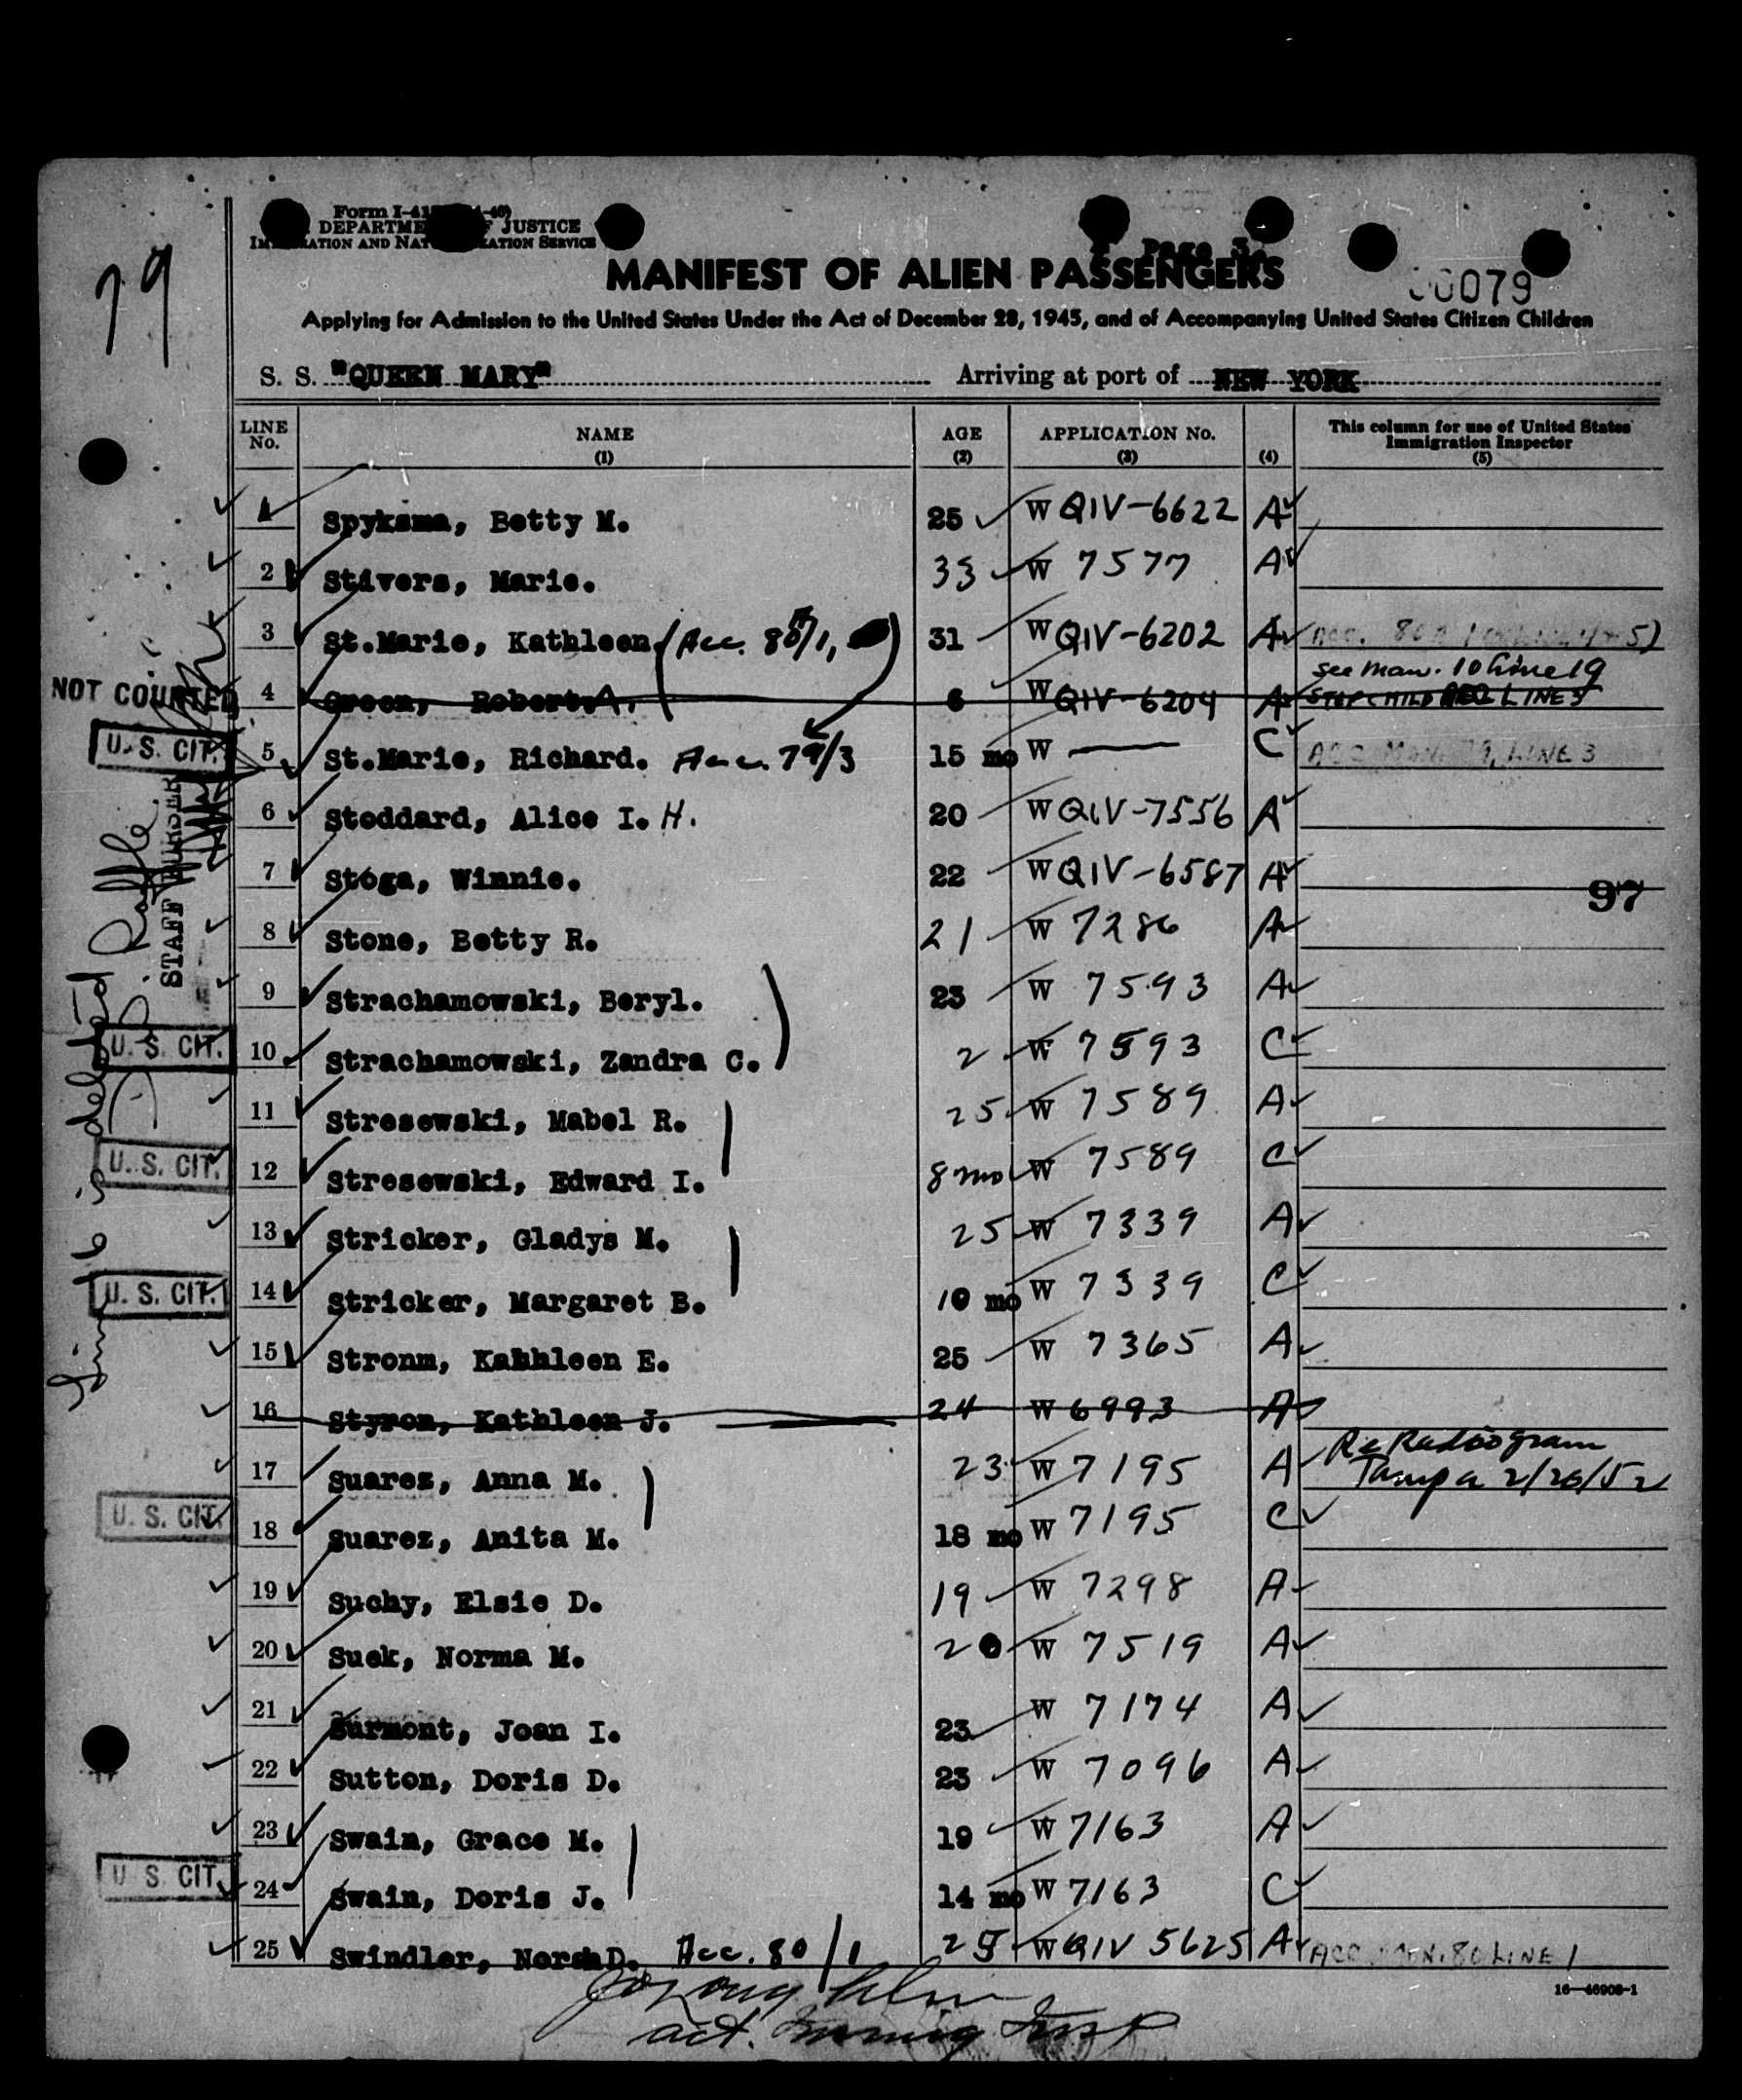 79
Form I-41
DEPARTME F JUSTICE
ATION AND NAT ATION SERVICE
Page 3
MANIFEST OF ALIEN PASSENGERS
00079
Applying for Admission to the United States Under the Act of December 28, 1945, and of Accompanying United States Citizen Children
S. S. "QUEEN MARY" Arriving at port of NEW YORK
LINE No. NAME (1) AGE (2) APPLICATION No. (3) (4) This column for use of United States Immigration Inspector (5)
1 Spyksma, Betty M. 25 W QIV-6622 A
2 Stivers, Marie. 33 W 7577 A
3 St.Marie, Kathleen (Acc. 80/1, ) 31 W QIV-6202 A Acc. 80
see man. 10 line 19
NOT COUNTED 4 Green, Robert A. 6 W QIV-6204 A STEPCHILD LINE 3
U. S. CIT. 5 St.Marie, Richard. Acc. 79/3 15 mo W — C ACC MAN. 79, LINE 3
6 Stoddard, Alice I. H. 20 W QIV-7556 A
7 Stoga, Winnie. 22 W QIV-6587 A
97
8 Stone, Betty R. 21 W 7286 A
9 Strachamowski, Beryl. 23 W 7593 A
U. S. CIT. 10 Strachamowski, Zandra C. 2 W 7593 C
11 Stresewski, Mabel R. 25 W 7589 A
U. S. CIT. 12 Stresewski, Edward I. 8 mo W 7589 C
13 Stricker, Gladys M. 25 W 7339 A
U. S. CIT. 14 Stricker, Margaret B. 10 mo W 7339 C
15 Stronm, Kahhleen E. 25 W 7365 A
16 Styron, Kathleen J. 24 W 6993 A
Re Radiogram
17 Suarez, Anna M. 23 W 7195 A Tampa 2/20/52
U. S. CIT. 18 Suarez, Anita M. 18 mo W 7195 C
19 Suchy, Elsie D. 19 W 7298 A
20 Suek, Norma M. 20 W 7519 A
21 Surmont, Joan I. 23 W 7174 A
22 Sutton, Doris D. 23 W 7096 A
23 Swain, Grace M. 19 W 7163 A
U. S. CIT. 24 Swain, Doris J. 14 mo W 7163 C
25 Swindler, Norah D. Acc. 80/1 25 W QIV 5625 A ACC MAN. 80 LINE 1
16—46908-1
act. Immig Insp
Line is deleted
STAFF